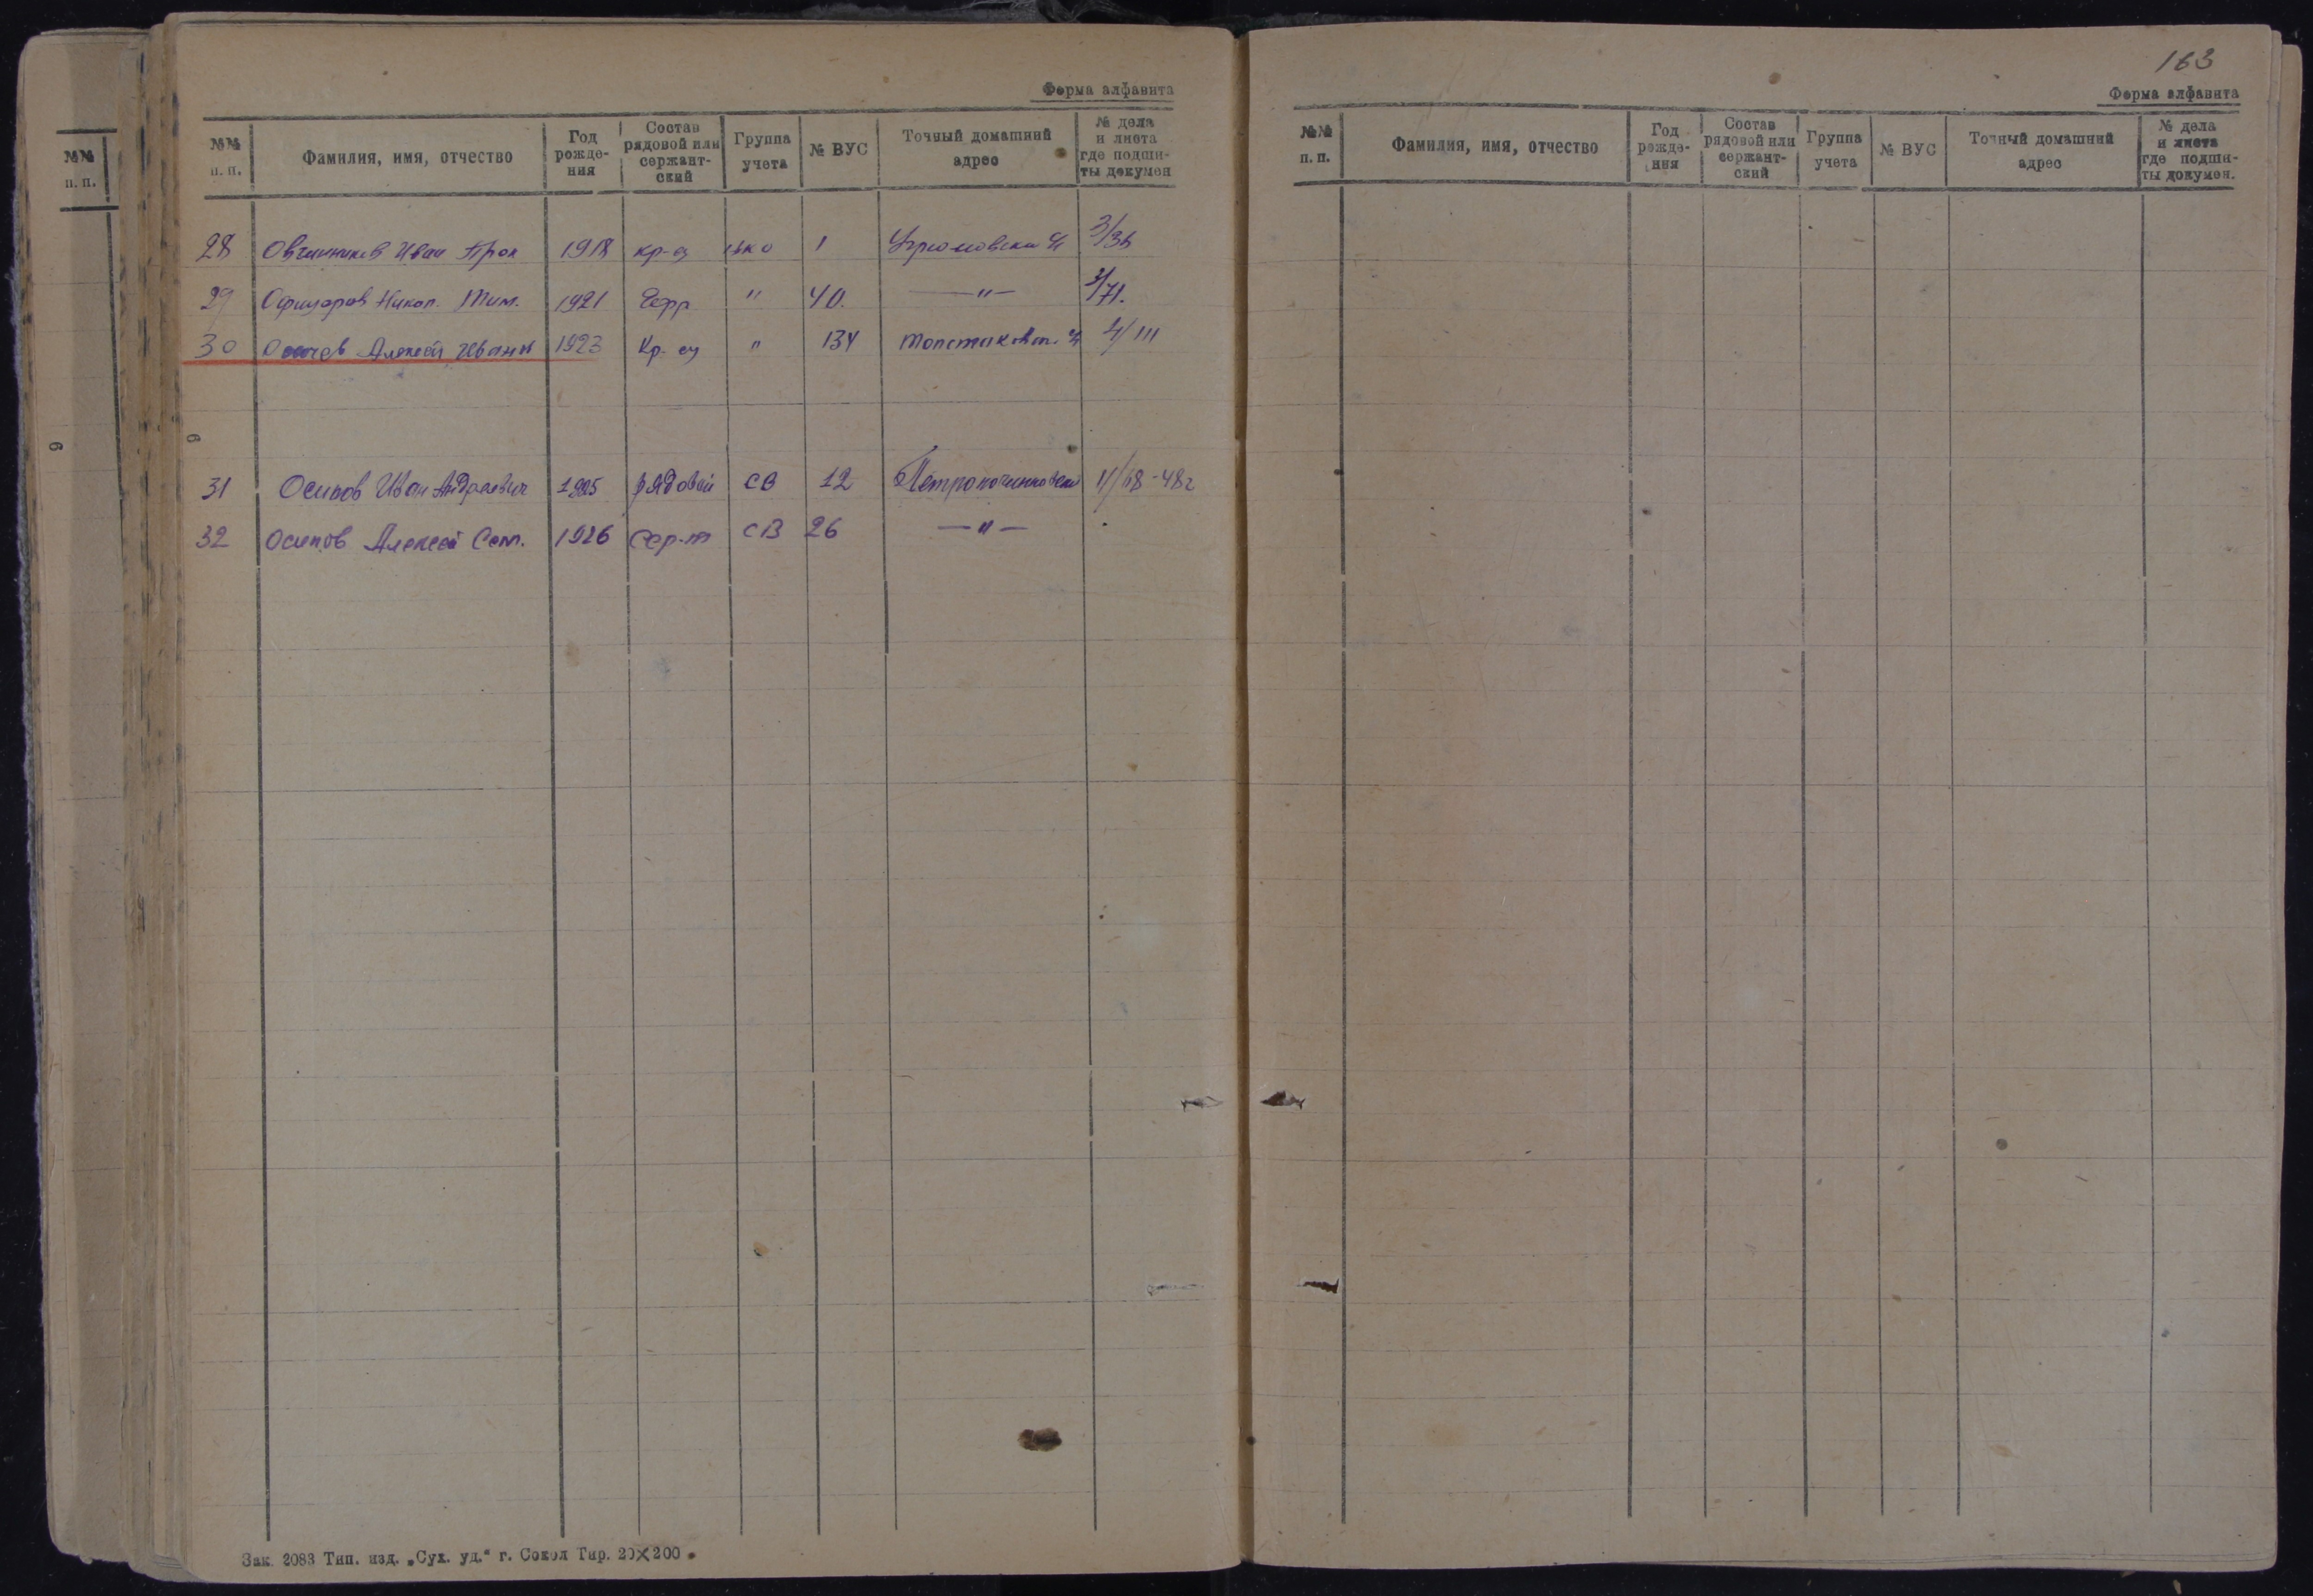 Форма алфавита
№№ п.п. Фамилия, имя, отчество Год рожде-ния Состав рядовой или сержант-ский Группа учета № ВУС Точный домашний адрес № дела и листа где подши-ты докумен
28 Овчинников Иван Прок 1918 кр-ц 1 3/36
29 Офицеров Никол. Тим. 1921 " 40. —"— /71.
30 Алексей Иванов 1923 Кр-ец " 134 4/111
31 Осипов Иван Андреевич 1925 рядовой СВ 12 11/68-48г
32 Осипов Алексей Сем. 1926 Сер-т СВ 26 —"—
Зак. 2083 Тип. изд. „Сух. уд.“ г. Сокол Тир. 20×200
163
Форма алфавита
№№ п.п. Фамилия, имя, отчество Год рожде-ния Состав рядовой или сержант-ский Группа учета № ВУС Точный домашний адрес № дела и листа где подши-ты докумен.
№№
п.п.
9
9